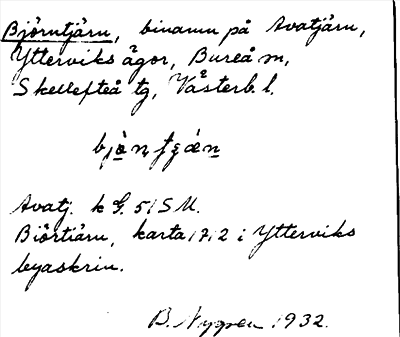 Björntjärn, binamn på Avatjärn,
Ytterviks ägor, Bureå sn,
Skellefteå tg, Västerb. l.
Avatj. k G. 51 S U.
Biörtiärn, karta 1712 i Ytterviks
byaskrin.
B. Nygren 1932.